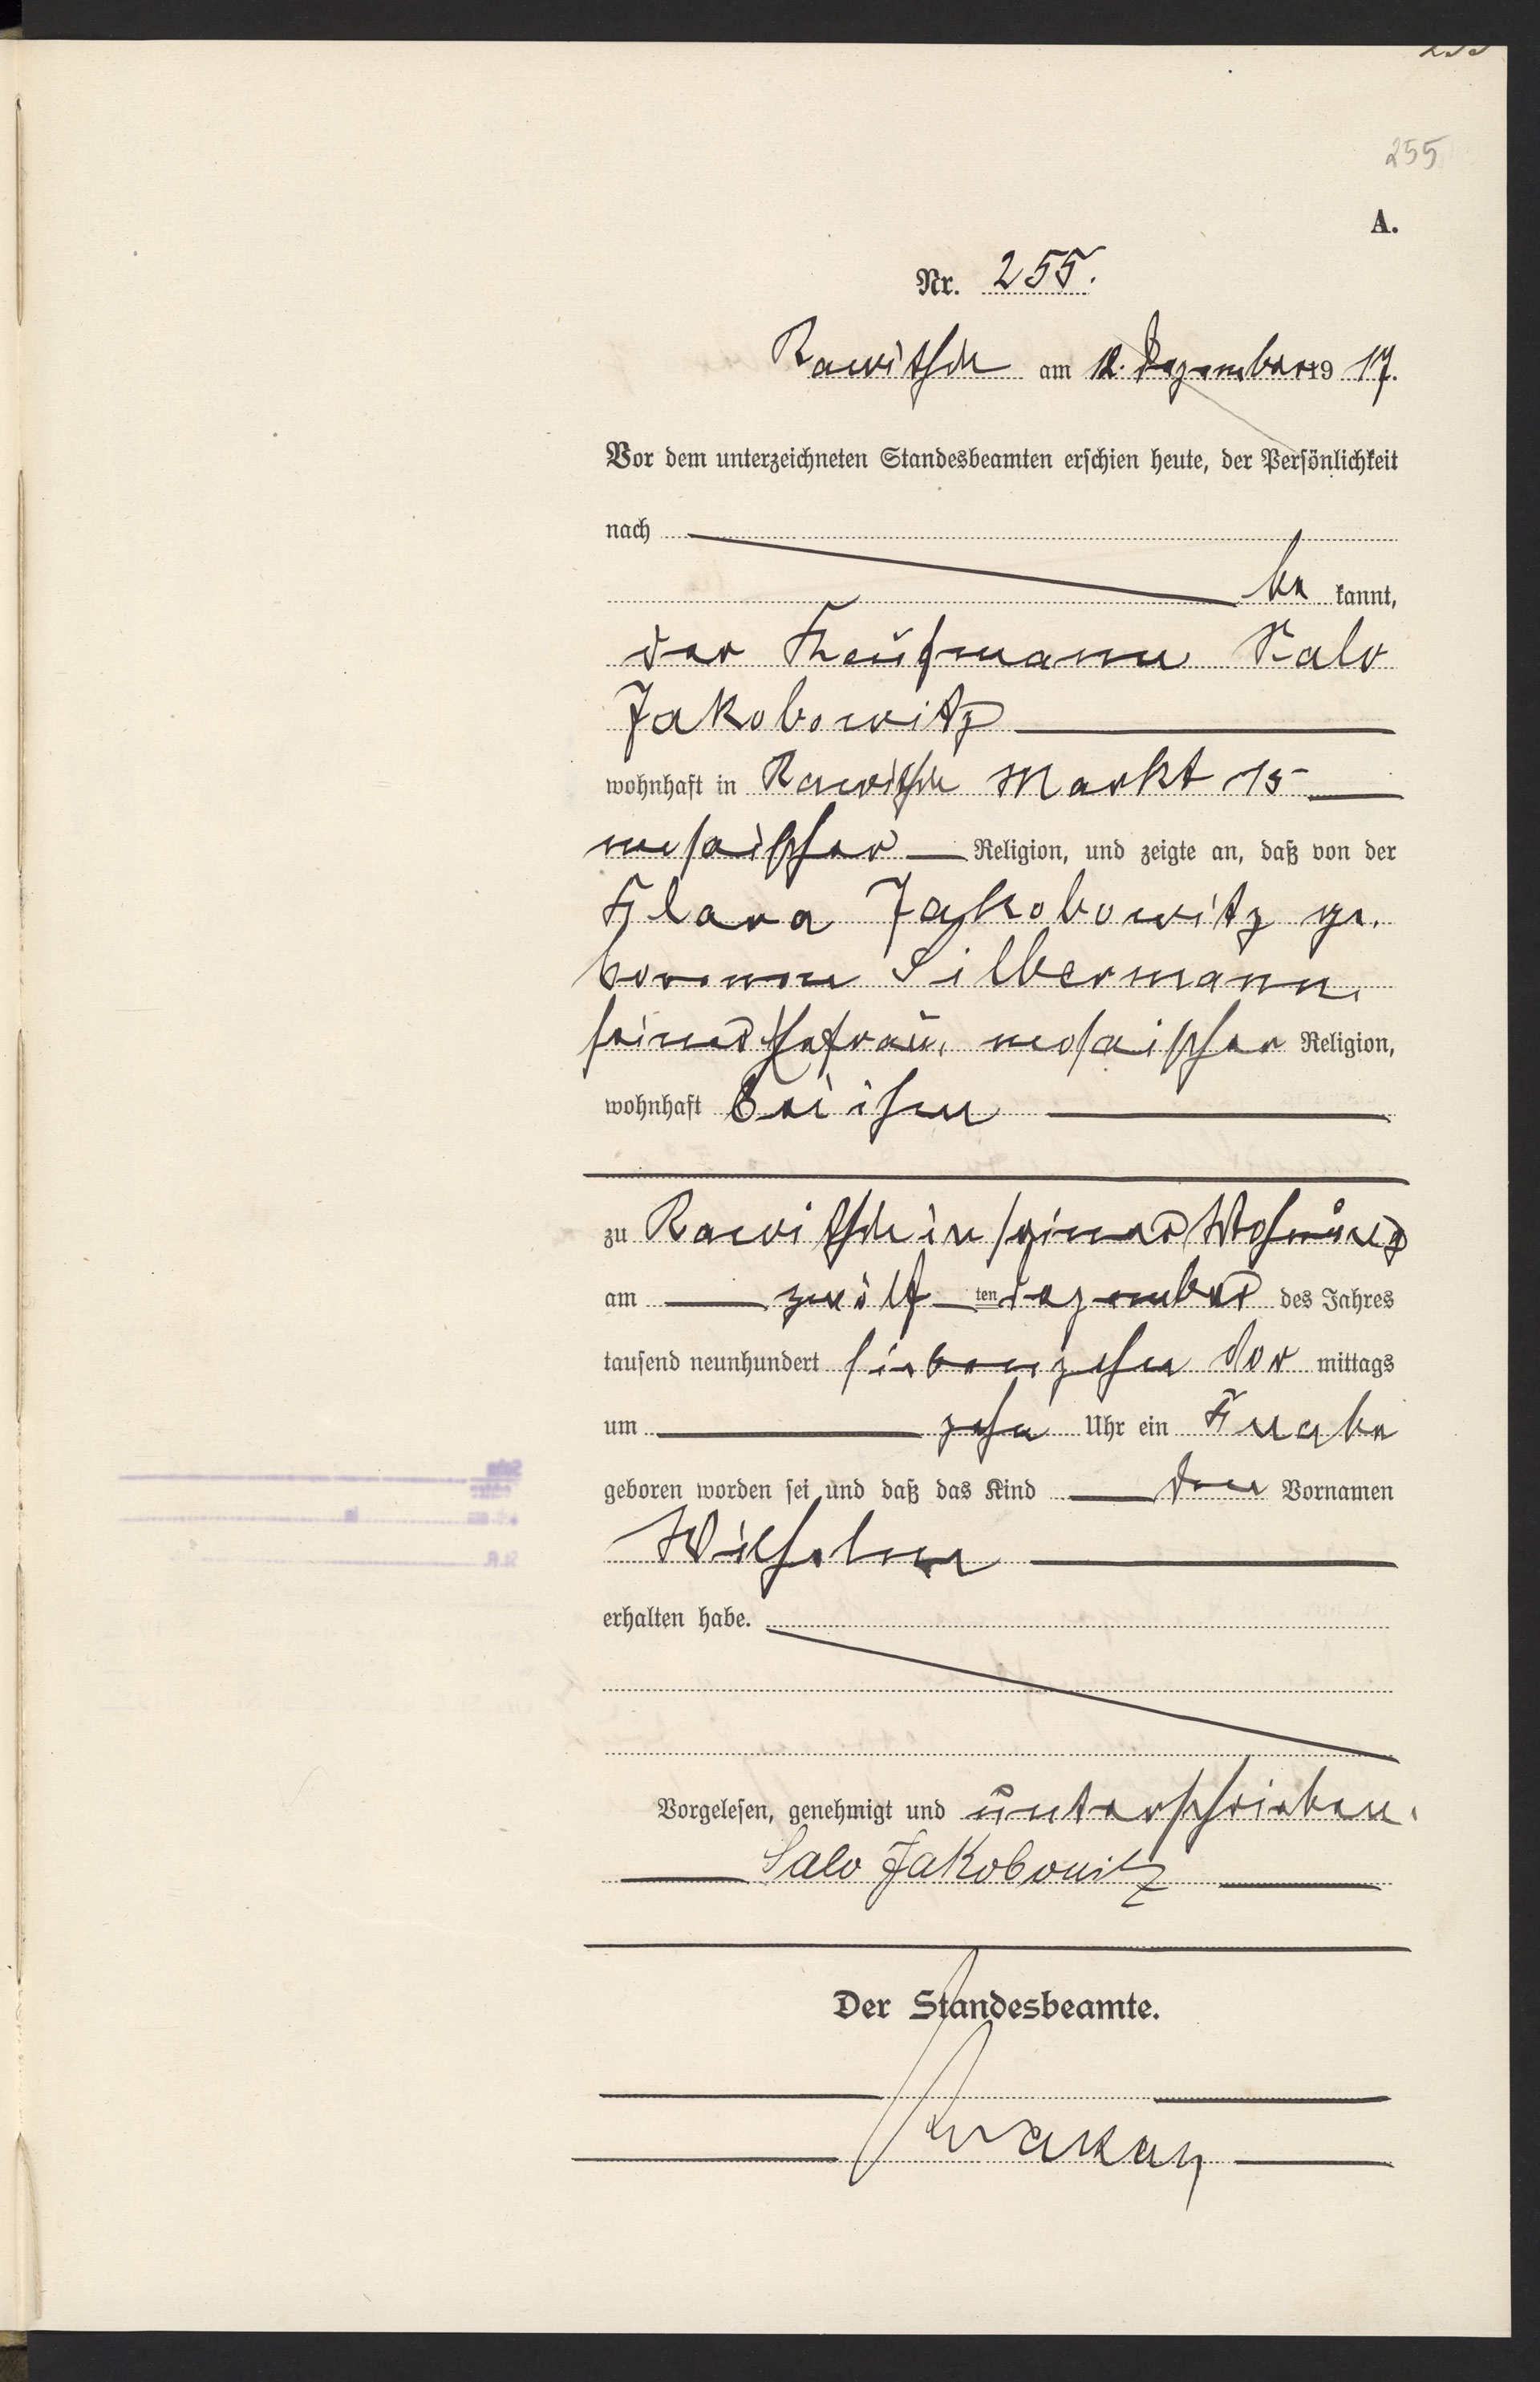 255
A.
Nr. 255.
Rawitsch am 12. Dezember 19 17.
Vor dem unterzeichneten Standesbeamten erschien heute, der Persönlichkeit
nach
be kannt,
der Kaufmann Salo
Jakobowitz
wohnhaft in Rawitsch Markt 15
mosaischer Religion, und zeigte an, daß von der
Klara Jakobowitz ge-
borenen Silbermann,
seiner Ehefrau, mosaischer Religion,
wohnhaft bei ihm
zu Rawitsch in seiner Wohnung
am zwölf ten Dezember des Jahres
tausend neunhundert siebenzehn vor mittags
um zehn Uhr ein Knabe
geboren worden sei und daß das Kind den Vornamen
Wilhelm
erhalten habe.
Vorgelesen, genehmigt und unterschrieben.
Salo Jakobowitz
Der Standesbeamte.